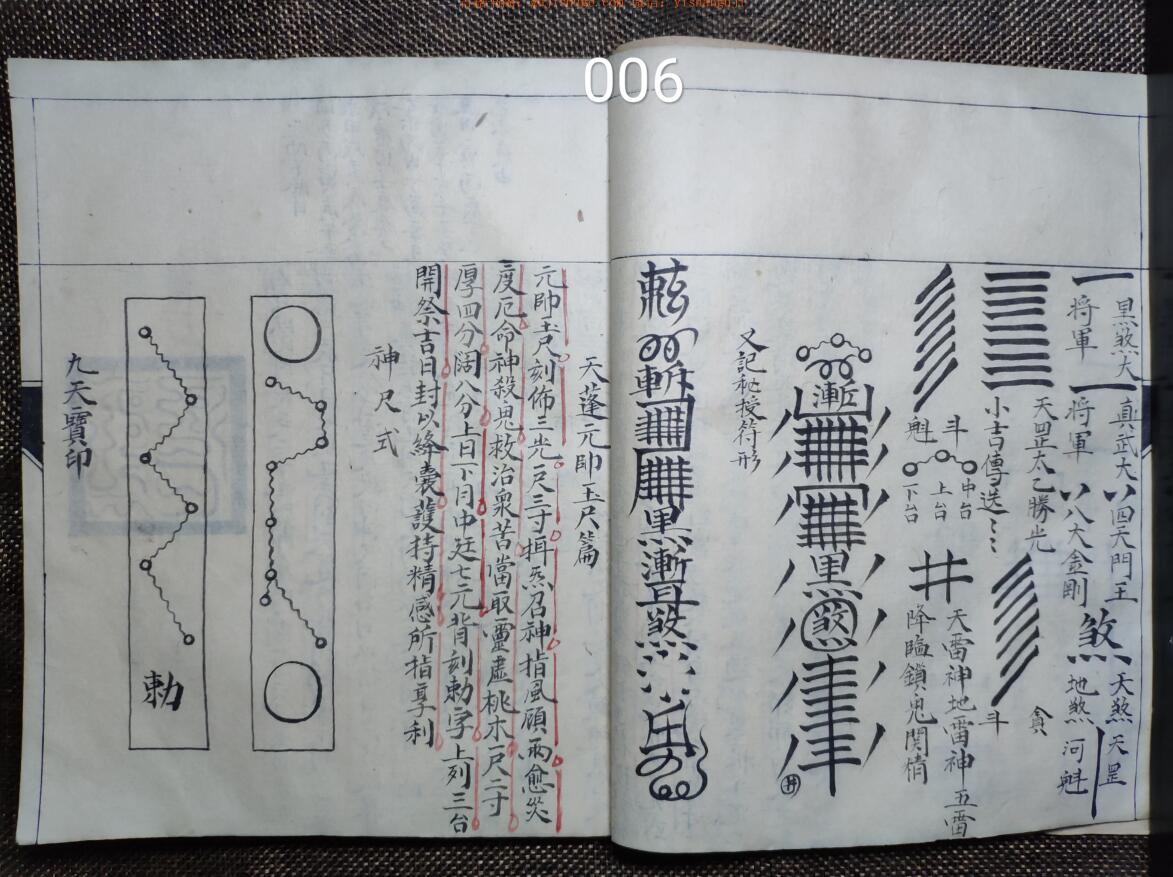 006
黑煞大
將軍
真武大
將軍
四天門王
八大金剛
煞
天煞
地煞
天罡
河魁
天罡太乙勝光
小吉傳送
貪
斗
斗
魁
中台
上台
下台
天雷神地雷神五雷
降臨鎖鬼関情
漸
黑
煞
又記秘授符形
漸
黑
漸
煞
天蓬元帥玉尺篇
元帥玉尺刻佈三光一尺三寸揖炁召神指風顧雨愈災
度厄命神殺鬼救治衆苦當取靈虛桃木一尺二寸
厚四分闊八分上日下月中廷七元背刻勅字上列三台
開祭吉日封以絳囊護持精感所指享利
神尺式
勅
九天寶印